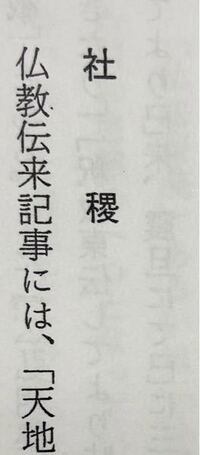 社稷
仏教伝来記事には、「天地